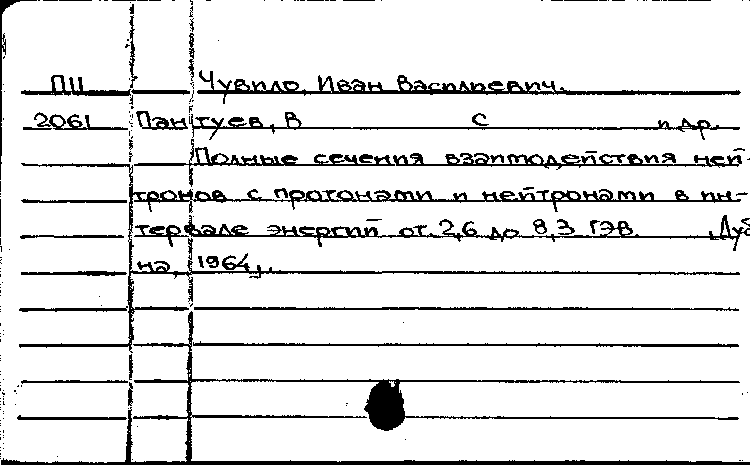 ПЦ Чувило, Иван Васильевич.
2061 Пантуев, В С и др.
Полные сечения взаимодействия ней-
тронов с протонами и нейтронами в ин-
тервале энергий от 2,6 до 8,3 ГЭВ. , Дуб
на, 1964,.